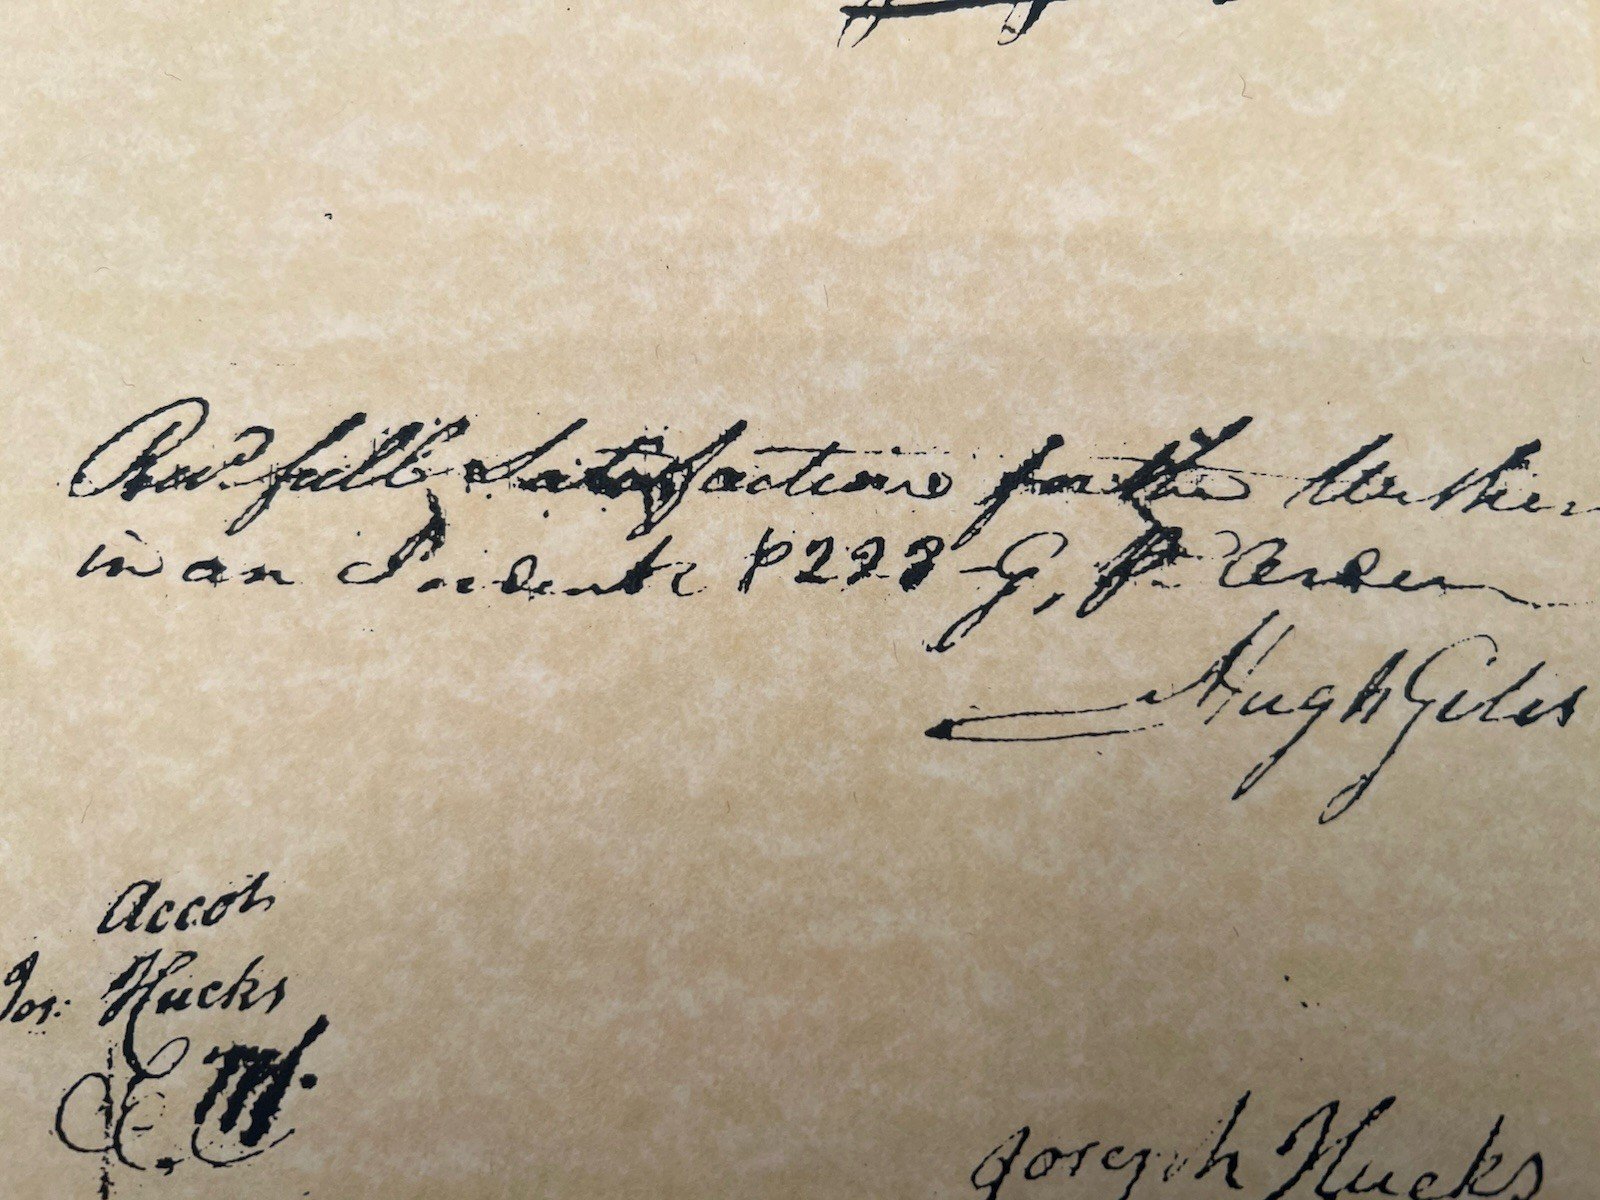 Recd. full Satisfaction for the Within
in an Indent P 273 G, Pr Order
Hugh Giles
Accot
Jos: Hucks
Joseph Hucks